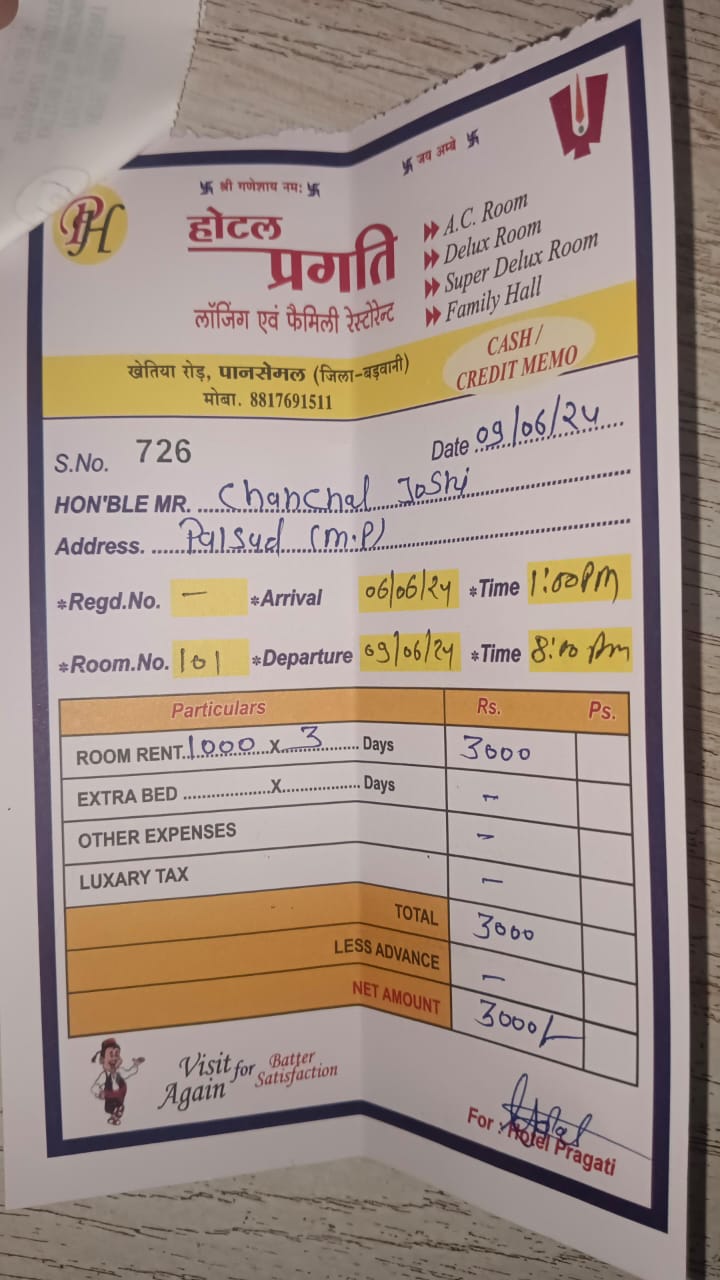 卐 श्री गणेशाय नमः 卐
卐 जय अम्बे 卐
PH
होटल
प्रगति
लॉजिंग एवं फैमिली रेस्टोरेन्ट
A.C. Room
Delux Room
Super Delux Room
Family Hall
खेतिया रोड़, पानसेमल (जिला-बड़वानी)
मोबा. 8817691511
CASH /
CREDIT MEMO
S.No. 726 Date 09/06/24
HON'BLE MR. Chanchal Joshi
Address. Palsud (M.P)
*Regd.No. — *Arrival 06/06/24 *Time 1:00PM
*Room.No. 101 *Departure 09/06/24 *Time 8:00 Am
Particulars Rs. Ps.
ROOM RENT 1000 X 3 Days 3000
EXTRA BED ....................X................. Days -
OTHER EXPENSES -
LUXARY TAX -
TOTAL 3000
LESS ADVANCE -
NET AMOUNT 3000/-
Visit for Batter
Again Satisfaction
For : Hotel Pragati